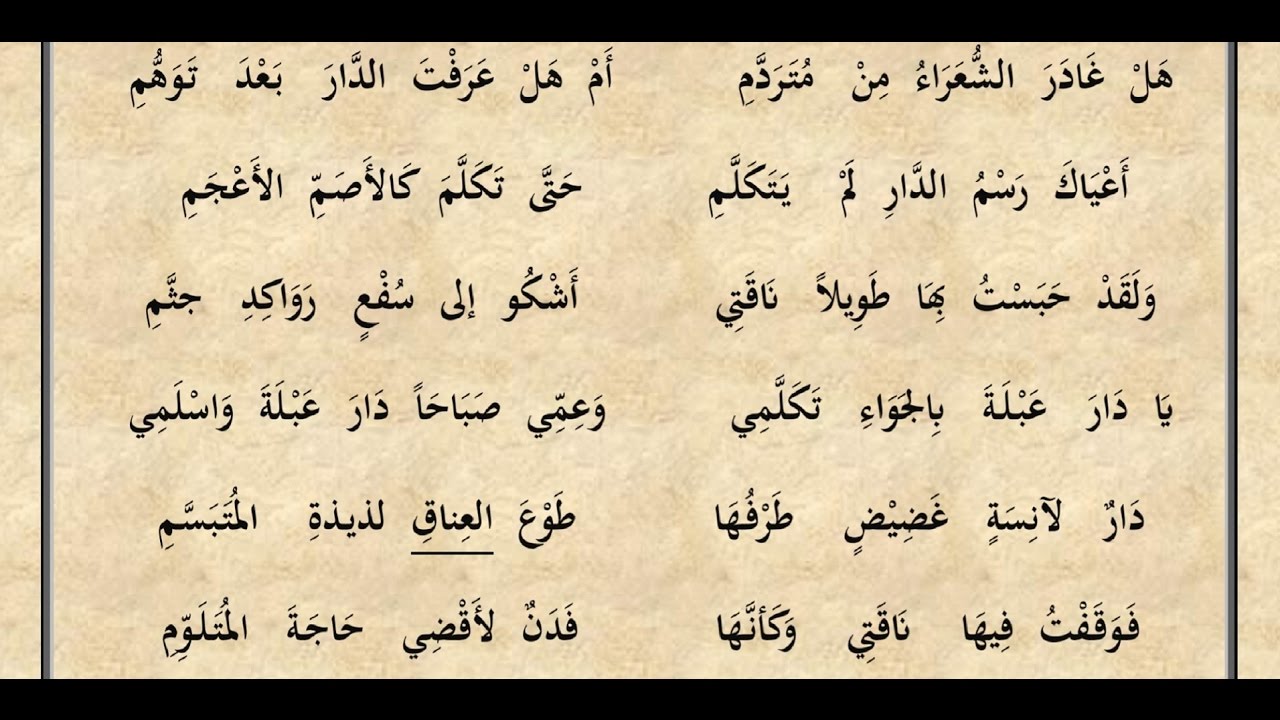 هَلْ غَادَرَ الشُّعَرَاءُ مِنْ مُتَرَدَّمِ أَمْ هَلْ عَرَفْتَ الدَّارَ بَعْدَ تَوَهُّمِ
أَعْيَاكَ رَسْمُ الدَّارِ لَمْ يَتَكَلَّمِ حَتَّى تَكَلَّمَ كَالأَصَمِّ الأَعْجَمِ
وَلَقَدْ حَبَسْتُ بِهَا طَوِيلاً نَاقَتِي أَشْكُو إلى سُفْعٍ رَوَاكِدِ جثَّمِ
يَا دَارَ عَبْلَةَ بِالجَوَاءِ تَكَلَّمِي وَعِمِّي صَبَاحَاً دَارَ عَبْلَةَ وَاسْلَمِي
دَارٌ لآنِسَةٍ غَضِيْضٍ طَرْفُهَا طَوْعَ العِناقِ لذيذةِ المُتَبَسَّمِ
فَوَقَفْتُ فِيهَا نَاقَتِي وَكَأنَّهَا فَدَنٌ لأَقْضِي حَاجَةَ المُتَلَوِّمِ